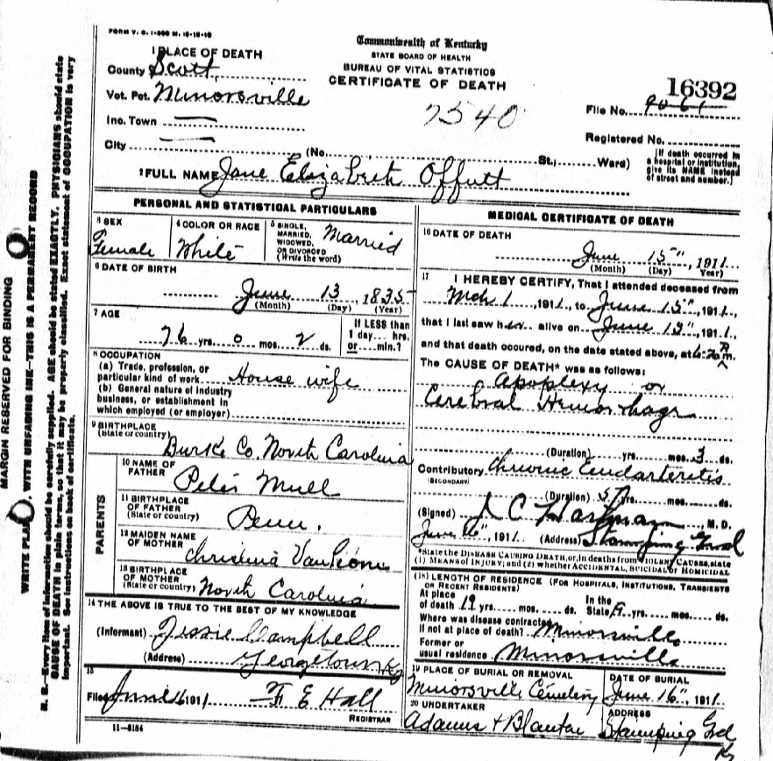 FORM V. S. 1-500 M. 12-12-10
Commonwealth of Kentucky
STATE BOARD OF HEALTH
BUREAU OF VITAL STATISTICS
CERTIFICATE OF DEATH
1 PLACE OF DEATH
County Scott
Vot. Pct. Minorsville
Inc. Town
City
(No. St., Ward)
16392
7540
File No.
Registered No.
[If death occurred in a hospital or institution, give its NAME instead of street and number.]
2 FULL NAME Jane Elizabeth Offutt
PERSONAL AND STATISTICAL PARTICULARS
3 SEX
Female
4 COLOR OR RACE
White
5 SINGLE, MARRIED, WIDOWED, OR DIVORCED (Write the word)
Married
6 DATE OF BIRTH
June 13, 1835
(Month) (Day) (Year)
7 AGE
76 yrs. 0 mos. 2 ds.
If LESS than 1 day... hrs. or... min.?
8 OCCUPATION
(a) Trade, profession, or particular kind of work House wife
(b) General nature of industry business, or establishment in which employed (or employer)
9 BIRTHPLACE
(State or country)
Burke Co. North Carolina
PARENTS
10 NAME OF FATHER
Peter Mull
11 BIRTHPLACE OF FATHER
(State or country)
Penn.
12 MAIDEN NAME OF MOTHER
Christina
13 BIRTHPLACE OF MOTHER
(State or country)
North Carolina
14 THE ABOVE IS TRUE TO THE BEST OF MY KNOWLEDGE
(Informant) Jessie Campbell
(Address) Georgetown Ky
15
Filed June 16 1911 F E Hall
REGISTRAR
11-3184
MEDICAL CERTIFICATE OF DEATH
16 DATE OF DEATH
June 15", 1911
(Month) (Day) (Year)
17 I HEREBY CERTIFY, That I attended deceased from
Mch 1, 1911, to June 15", 1911,
that I last saw her alive on June 13", 1911,
and that death occured, on the date stated above, at m.
The CAUSE OF DEATH* was as follows:
Apoplexy or
Cerebral Hemorrhage
(Duration) yrs. mos. 3 ds.
Contributory Chronic Endarteritis
(SECONDARY)
(Duration) yrs. mos. ds.
(Signed) Hartman, M. D.
June 16", 1911 (Address) Stamping Grnd
*State the DISEASE CAUSING DEATH, or, in deaths from VIOLENT CAUSES, state (1) MEANS OF INJURY; and (2) whether ACCIDENTAL, SUICIDAL or HOMICIDAL
(18) LENGTH OF RESIDENCE (FOR HOSPITALS, INSTITUTIONS, TRANSIENTS OR RECENT RESIDENTS)
At place of death 19 yrs. mos. ds. In the State yrs. mos. ds.
Where was disease contracted if not at place of death? Minorsville
Former or usual residence Minorsville
19 PLACE OF BURIAL OR REMOVAL
Minorsville Cemetery
DATE OF BURIAL
June 16", 1911
20 UNDERTAKER
Adams & Blanton
ADDRESS
Stamping Grd Ky
MARGIN RESERVED FOR BINDING
WRITE PLAINLY, WITH UNFADING INK—THIS IS A PERMANENT RECORD
N. B.—Every item of information should be carefully supplied. AGE should be stated EXACTLY. PHYSICIANS should state
CAUSE OF DEATH in plain terms, so that it may be properly classified. Exact statement of OCCUPATION is very
important. See instructions on back of certificate.